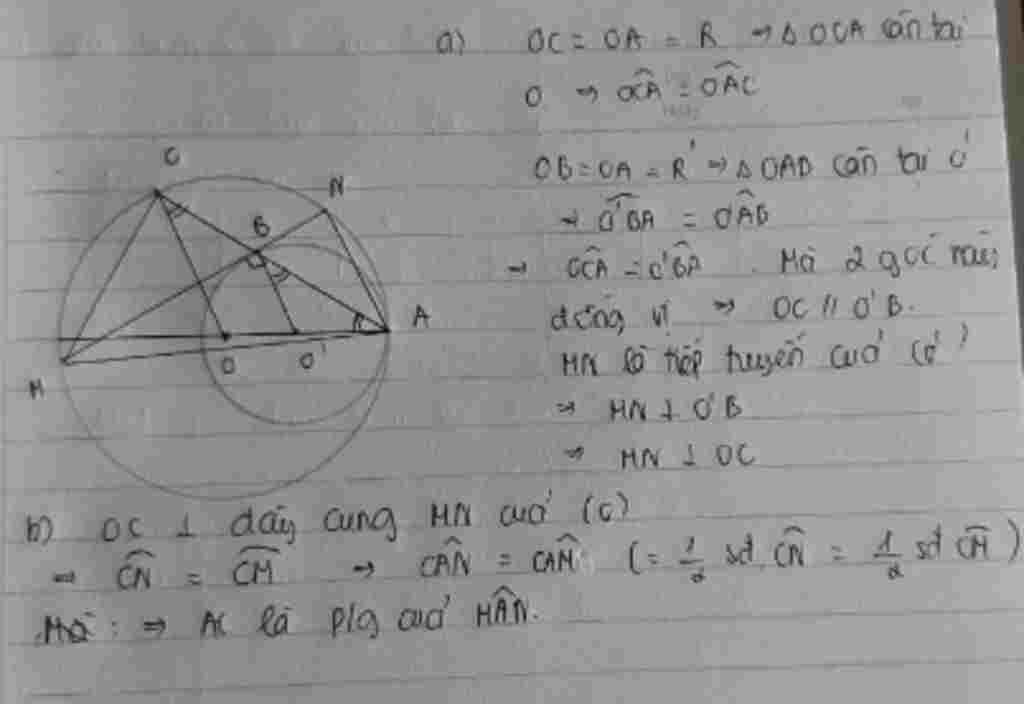 a) OC = OA = R → Δ OCA cân tại
O → OĈA = OÂC
OB = OA = R' → Δ OAB cân tại O'
→ O'B̂A = O'ÂB
→ OĈA = O'B̂A. Mà 2 góc này
đồng vị → OC // O'B.
MN là tiếp tuyến của (O')
→ MN ⊥ O'B
→ MN ⊥ OC
C
N
B
A
O
O'
M
b) OC ⊥ dây cung MN của (O)
→ CN = CM → CÂN = CÂM (= 1/2 sđ CN = 1/2 sđ CM)
Mà : ⇒ AC là p/g của MÂN.